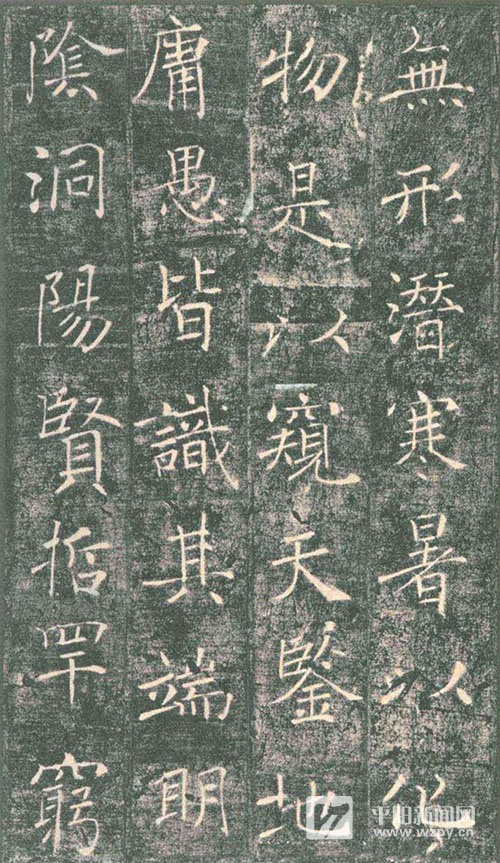 無形潛寒暑以化
物是以窺天鑒地
庸愚皆識其端明
陰洞陽賢哲罕窮
平阳新闻网
www.wzpy.cn